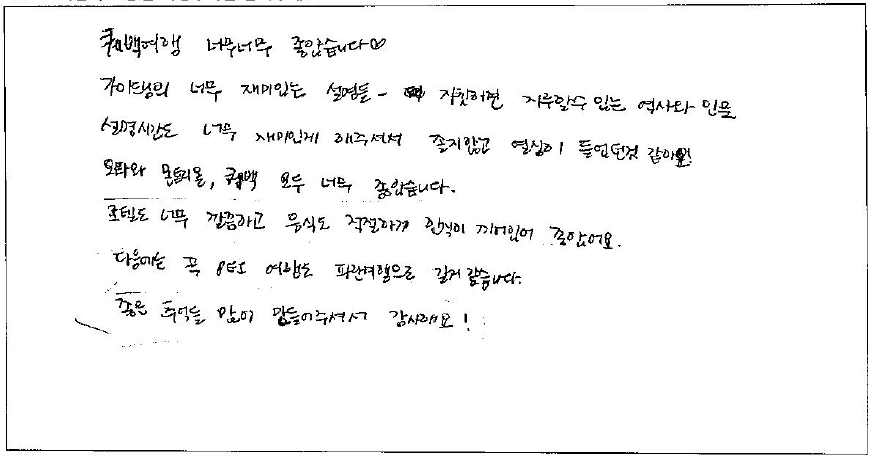 퀘백여행 너무너무 좋았습니다♡
가이드님의 너무 재미있는 설명들 - 자칫하면 지루할수 있는 역사와 인문
설명시간도 너무 재미있게 해주셔서 졸지않고 열심히 들었던것 같아요!
오타와 몬트리올, 퀘백 모두 너무 좋았습니다.
호텔도 너무 깔끔하고 음식도 적절하게 한식이 끼어있어 좋았어요.
다음에는 꼭 PEI 여행도 파란여행으로 길게 갈습니다.
좋은 추억들 많이 만들어주셔서 감사해요!